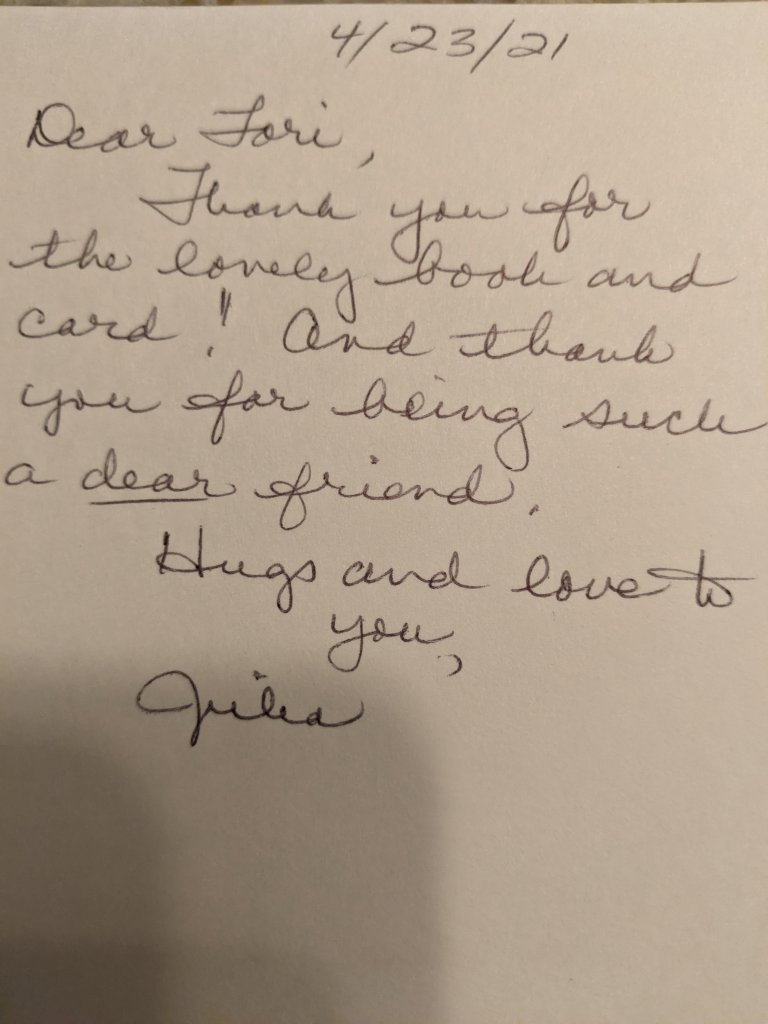 4/23/21
Dear Tori,
Thank you for
the lovely book and
card! And thank
you for being such
a dear friend.
Hugs and love to
you,